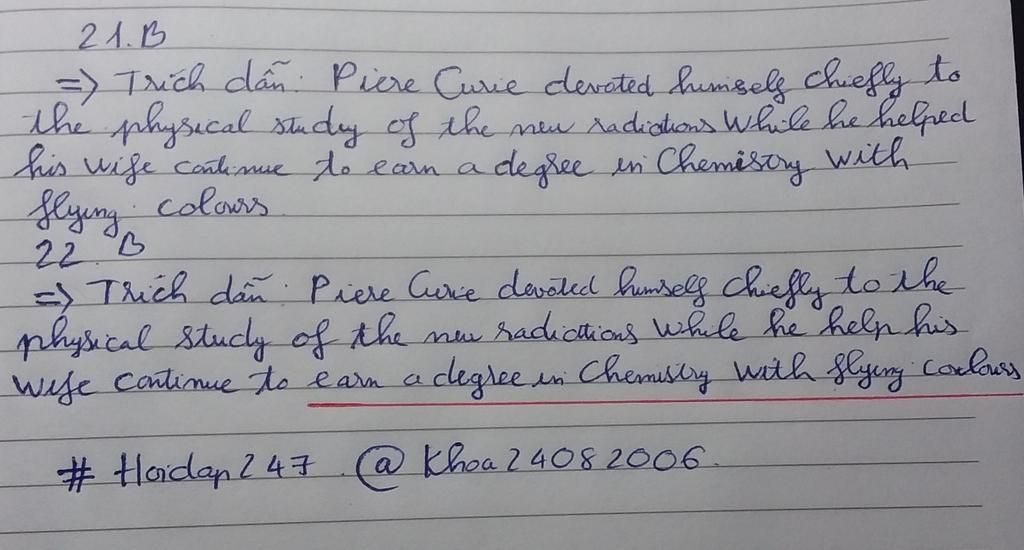 21.B
=> Trích dẫn: Piere Curie devoted humself chiefly to
the physical study of the new radiations While he helped
his wife continue to earn a degree in Chemistry With
flying colours
22. B
=> Trích dẫn: Piere Curie devoted humself chiefly to the
physical study of the new radiations While he help his
Wife continue to earn a degree in Chemistry With flying colours
# Hoidap247 @ Khoa24082006.